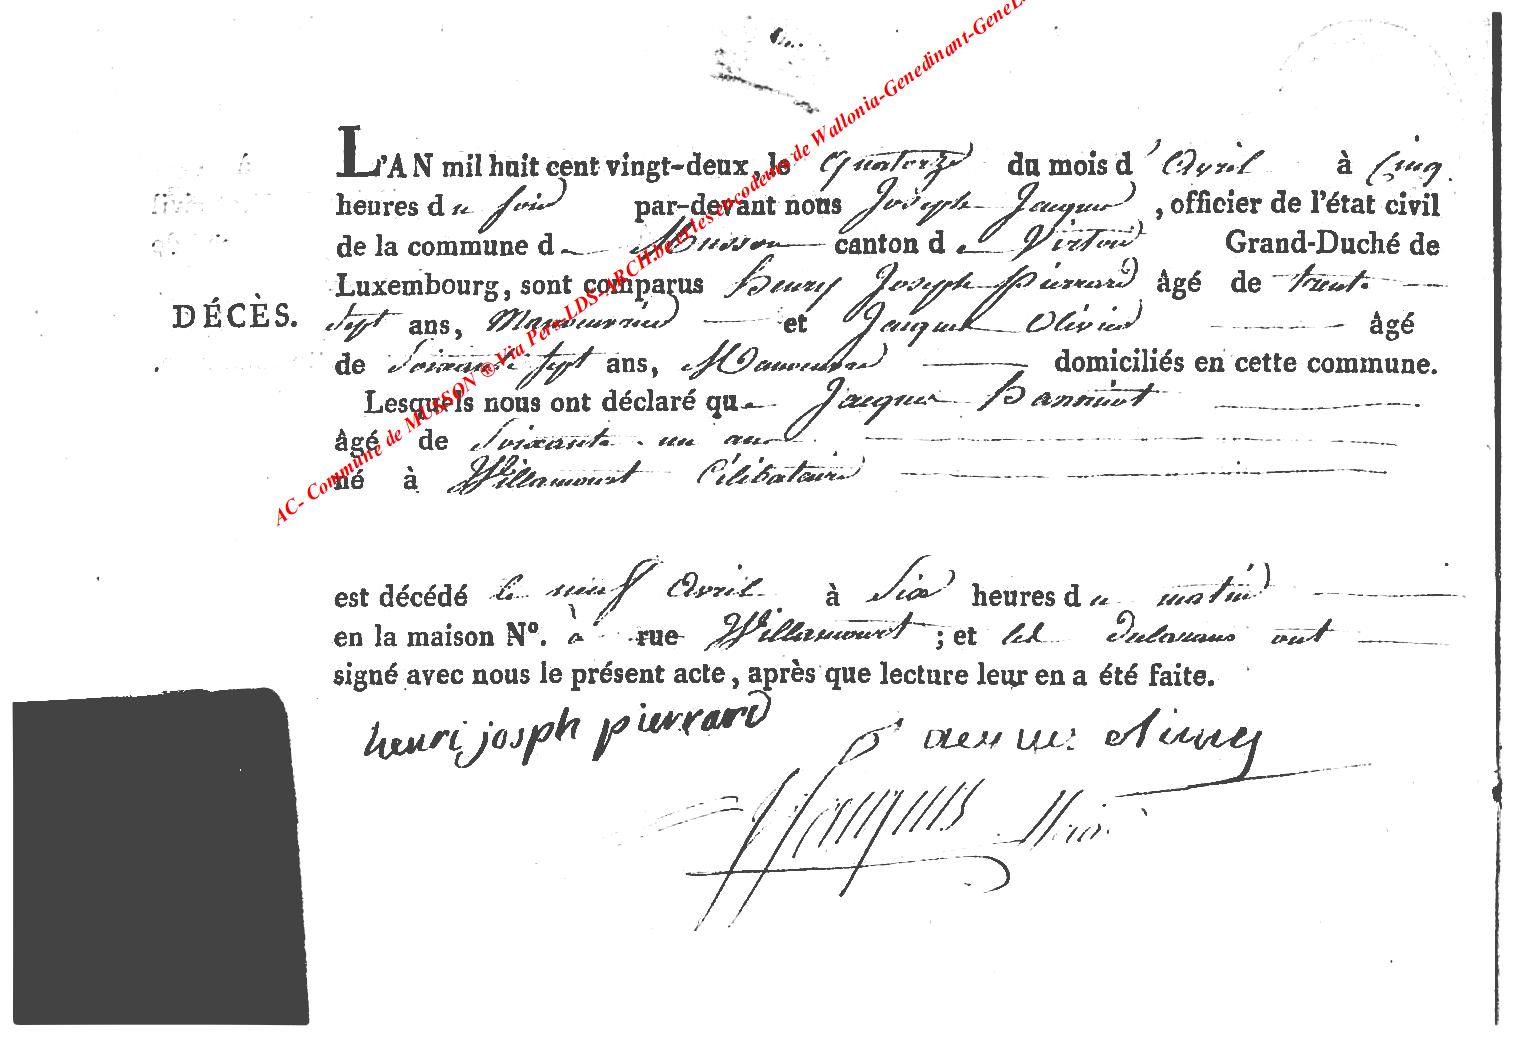 AC- Commune de MUSSON ® Via Pers-LDS-ARCH.be et les encodeurs de Wallonia-Genedinant-GeneL
L'AN mil huit cent vingt-deux, le quatorze du mois d'avril à cinq
heures du soir par-devant nous Joseph Jacques, officier de l'état civil
de la commune de Musson canton de Virton Grand-Duché de
Luxembourg, sont comparus henry Joseph Pierrard âgé de trente
DÉCÈS.
Sept ans, Manoeuvrier et Jacques Olivier âgé
de Soixante sept ans, domiciliés en cette commune.
Lesquels nous ont déclaré que Jacques
âgé de Soixante un ans
né à Willancourt Célibataire
est décédé le neuf avril à Six heures du matin
en la maison N°. à rue Willancourt ; et les déclarans ont
signé avec nous le présent acte, après que lecture leur en a été faite.
henri josph pierrard
Jacques